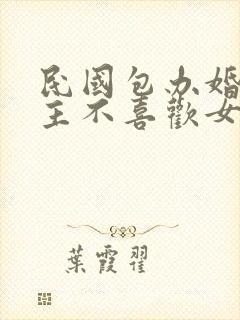 民國包办婚
主不喜歡女
葉霞翟